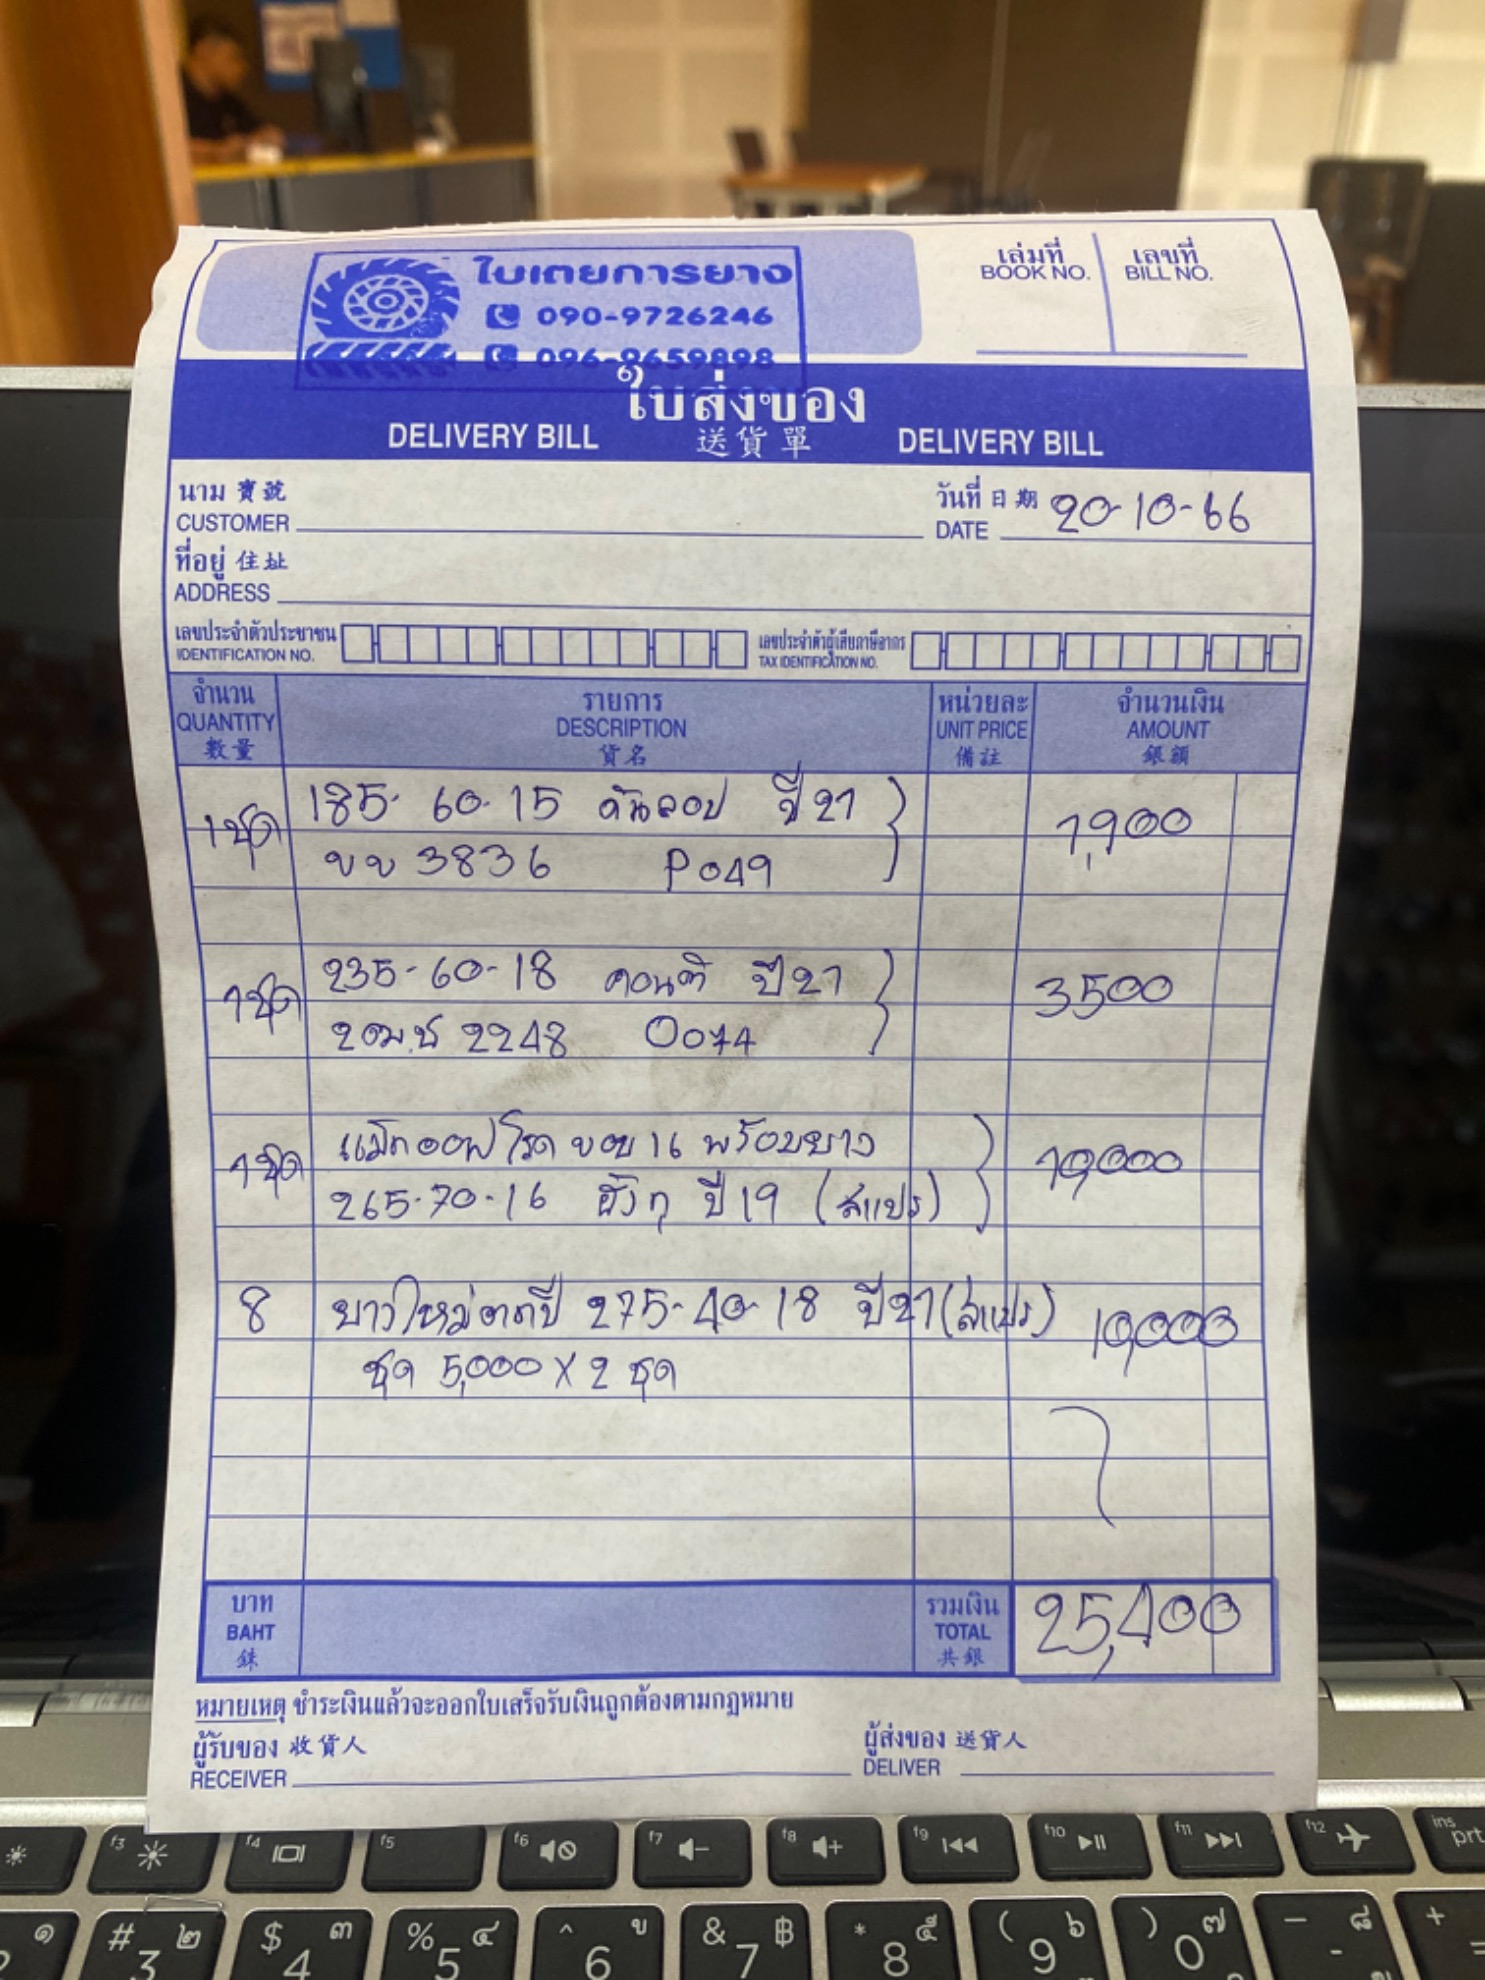 ใบเตยการยาง
090-9726246
096-9659898
เล่มที่
BOOK NO.
เลขที่
BILL NO.
ใบส่งของ
DELIVERY BILL 送貨單 DELIVERY BILL
นาม 寶號
CUSTOMER
วันที่ 日期 20-10-66
DATE
ที่อยู่ 住址
ADDRESS
เลขประจำตัวประชาชน
IDENTIFICATION NO.
เลขประจำตัวผู้เสียภาษีอากร
TAX IDENTIFICATION NO.
จำนวน
QUANTITY
數量
รายการ
DESCRIPTION
貨名
หน่วยละ
UNIT PRICE
備註
จำนวนเงิน
AMOUNT
銀額
1ชุด 185-60-15 ดันลอป ปี 21 1,900
ขข 3836 P049
1ชุด 235-60-18 คอนติ ปี 21 3500
2ฒช 2248 0074
1ชุด แม็กออฟโรด ขอบ 16 พร้อมยาง 10,000
265-70-16 ฮังกุ ปี 19 (สแปร์)
8 ยางใหม่ตกปี 275-40-18 ปี 21 (สแปร์) 10,000
ชุด 5,000 X 2 ชุด
บาท
BAHT
銖
รวมเงิน
TOTAL
共銀
25,400
หมายเหตุ ชำระเงินแล้วจะออกใบเสร็จรับเงินถูกต้องตามกฎหมาย
ผู้รับของ 收貨人
RECEIVER
ผู้ส่งของ 送貨人
DELIVER
f3 f4 f5 f6 f7 f8 f9 f10 f11 f12 ins
prt
๑ # ๒ $ ๓ % ๔ ^ ข & ฿ * ๕ ( ๖ ) ๗ _ ๘ +
2 3 4 5 6 7 8 9 0 - =